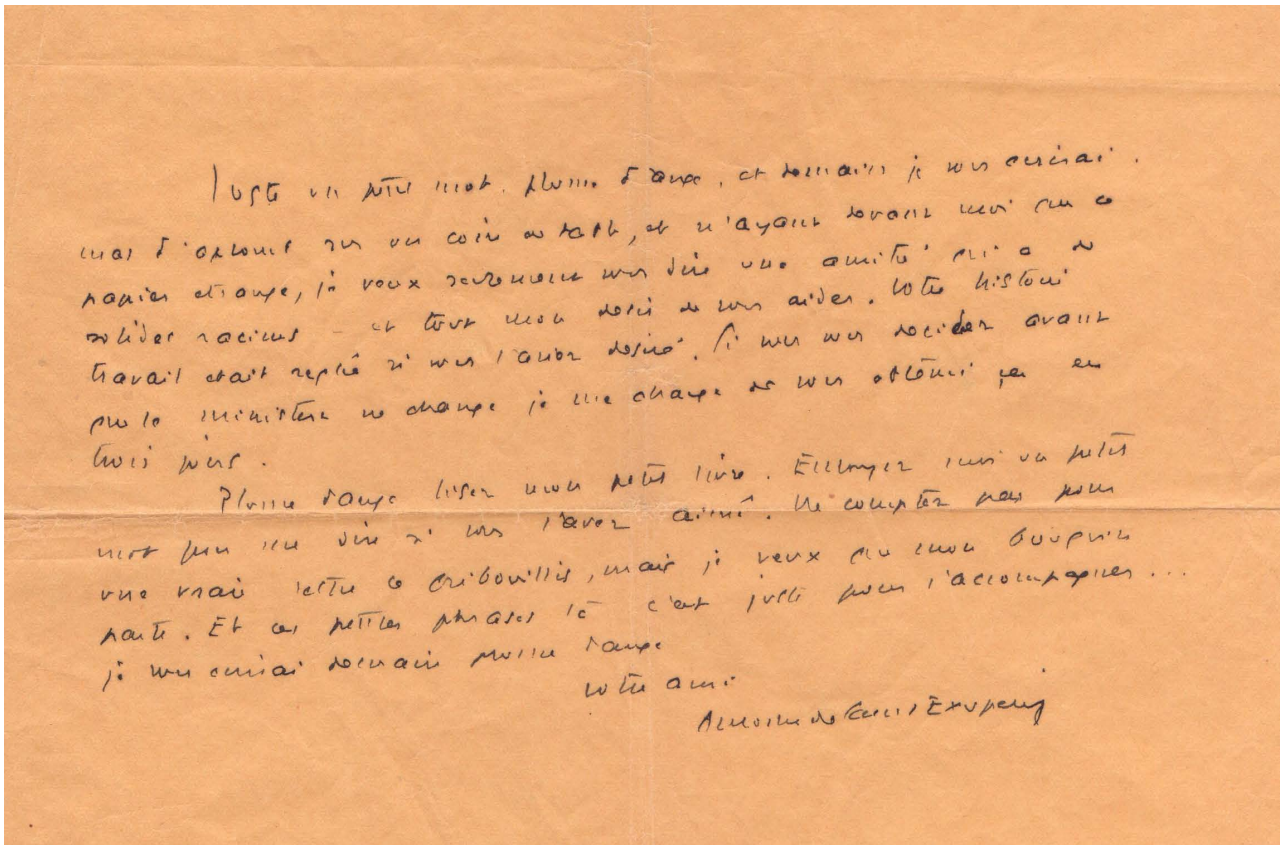 Juste un petit mot, plume d'ange, et demain je vous écrirai.
mais d'abord sur un coin de table, et n'ayant devant moi que ce
papier étrange, je veux seulement vous dire une amitié qui a de
solides racines – et tout mon désir de vous aider. Votre histoire
travail était réglé si vous l'aviez désiré. Si vous vous décidez avant
que le ministère ne change je me charge de vous obtenir ça en
trois jours.
Plume d'ange lisez mon petit livre. Envoyez moi un petit
mot pour me dire si vous l'avez aimé. Ne comptez pas pour
une vraie lettre ce gribouillis, mais je veux que mon bouquin
parte. Et ces petites phrases là c'est juste pour l'accompagner...
je vous écrirai demain plume d'ange
Votre ami
Antoine de Saint Exupéry